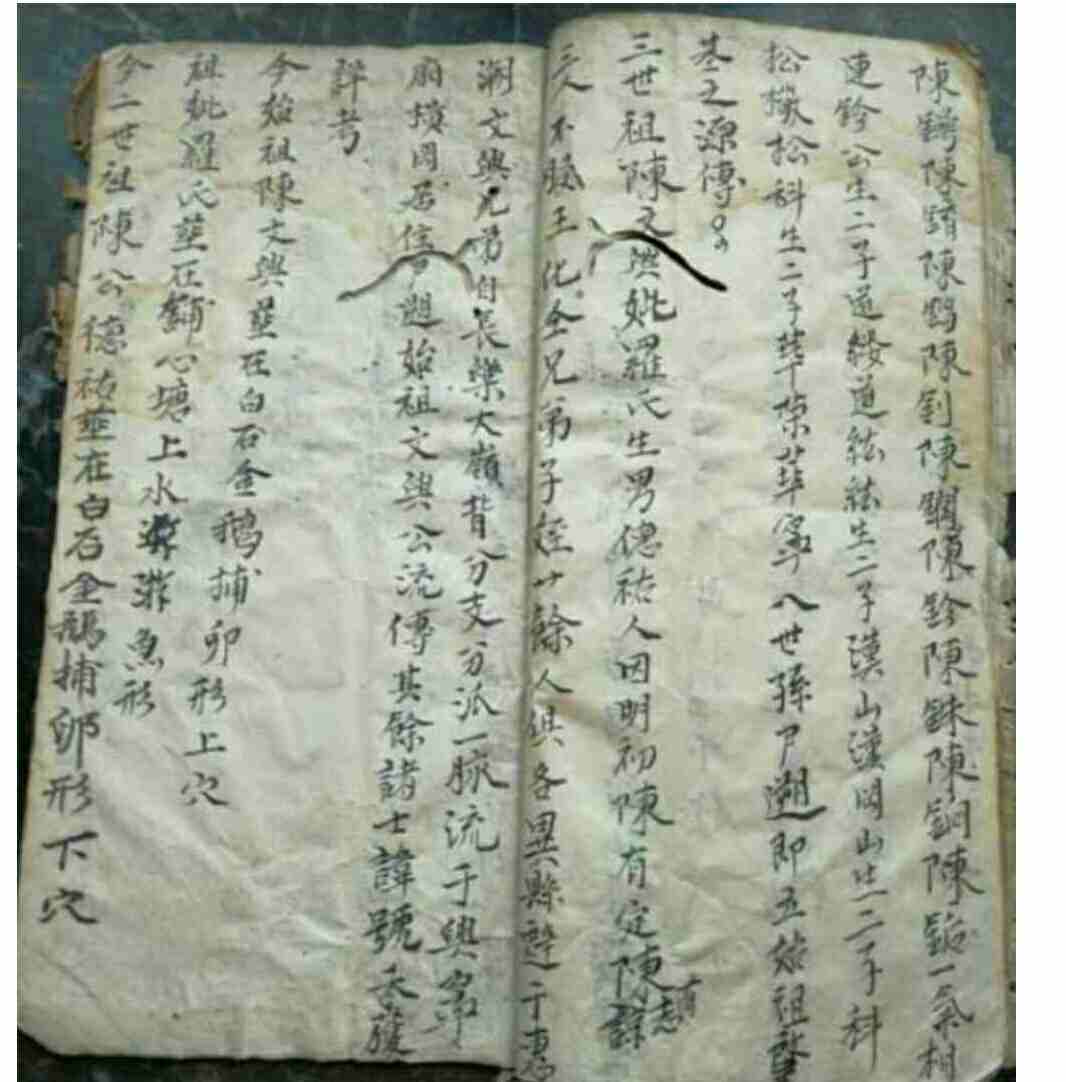 陳鏄陳錆陳鎢陳釗陳鐗陳鈴陳銖陳銅陳鋁一氣相
連鈴公生二子道緩道紘紘生二子漢山漢岡山生二子科
松機松科生二子華陳華寧八世孫尸遡即立始祖啓
基之源傳
三世祖陳文興妣羅氏生男德祐人因明初陳有定陳有諒志
三人不服王化全兄弟子侄廿餘人俱各異縣避于惠
潮文興兄弟自長樂大嶺背分支分派一脉流于興寧
扇橫岡居信尸遡始祖文興公流傳其餘諸士諱號未獲
詳考
今始祖陳文興葬在白石金鵝捕卵形上穴
祖妣羅氏葬在鋪心塘上水游魚形
今二世祖陳公德祐葬在白石金鵝捕卵形下穴